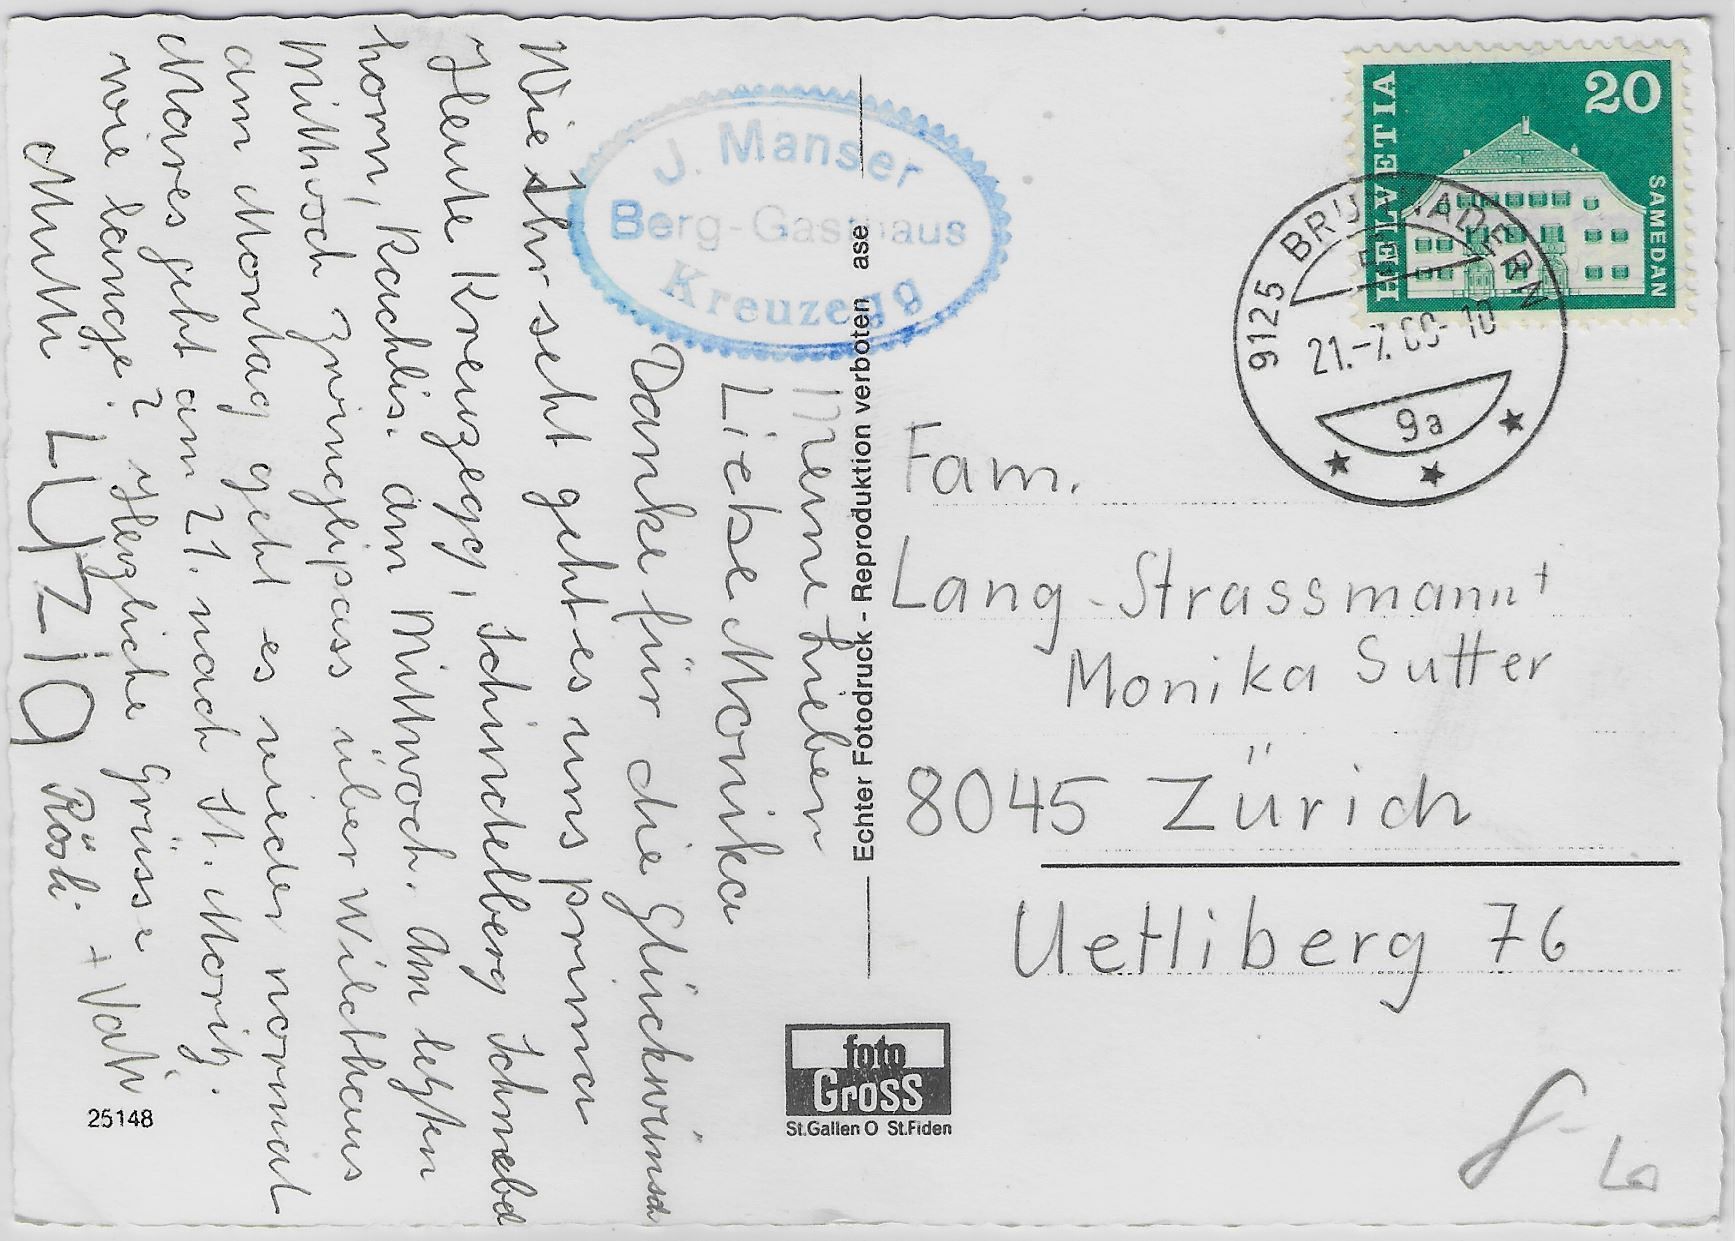 Meine Lieben
Liebe Monika
Danke für die Glückwünsch
Wie Ihr seht geht es uns prima
Heute Kreuzegg, Schindelberg Schnebel
horn, Rachlis. am Mittwoch. Am letzten
Mittwoch Zwinglipass über Wildhaus
am Montag geht es wieder normal
Mares geht am 21. nach St. Moritz.
wie lange? Herzliche Grüsse
Mutti LUZIA Rösli + Vati
25148
J. Manser
Berg-Gasthaus
Kreuzegg
Echter Fotodruck - Reproduktion verboten ase
foto
Gross
St.Gallen O St.Fiden
HELVETIA
20
SAMEDAN
9125 BRUNNADERN
21.-7.69-10
9a
Fam.
Lang-Strassmann+
Monika Sutter
8045 Zürich
Uetliberg 76